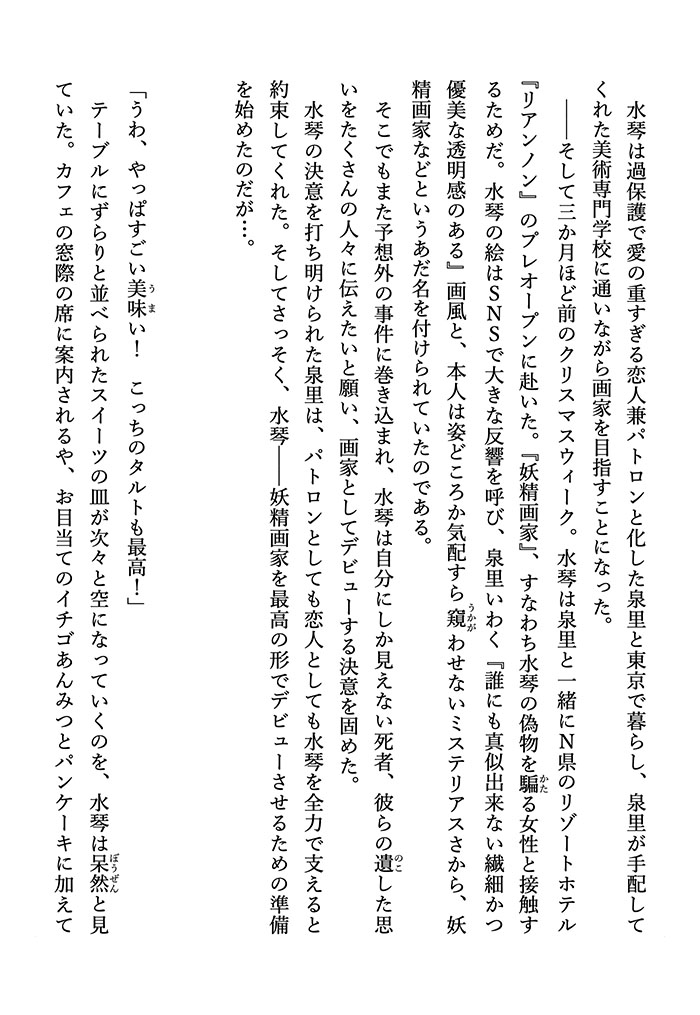 水琴は過保護で愛の重すぎる恋人兼パトロンと化した泉里と東京で暮らし、泉里が手配して
くれた美術専門学校に通いながら画家を目指すことになった。
――そして三か月ほど前のクリスマスウィーク。水琴は泉里と一緒にN県のリゾートホテル
『リアンノン』のプレオープンに赴いた。『妖精画家』、すなわち水琴の偽物を騙る女性と接触す
るためだ。水琴の絵はSNSで大きな反響を呼び、泉里いわく『誰にも真似出来ない繊細かつ
優美な透明感のある』画風と、本人は姿どころか気配すら窺わせないミステリアスさから、妖
精画家などというあだ名を付けられていたのである。
そこでもまた予想外の事件に巻き込まれ、水琴は自分にしか見えない死者、彼らの遺した思
いをたくさんの人々に伝えたいと願い、画家としてデビューする決意を固めた。
水琴の決意を打ち明けられた泉里は、パトロンとしても恋人としても水琴を全力で支えると
約束してくれた。そしてさっそく、水琴――妖精画家を最高の形でデビューさせるための準備
を始めたのだが…。
「うわ、やっぱすごい美味い！　こっちのタルトも最高！」
テーブルにずらりと並べられたスイーツの皿が次々と空になっていくのを、水琴は呆然と見
ていた。カフェの窓際の席に案内されるや、お目当てのイチゴあんみつとパンケーキに加えて